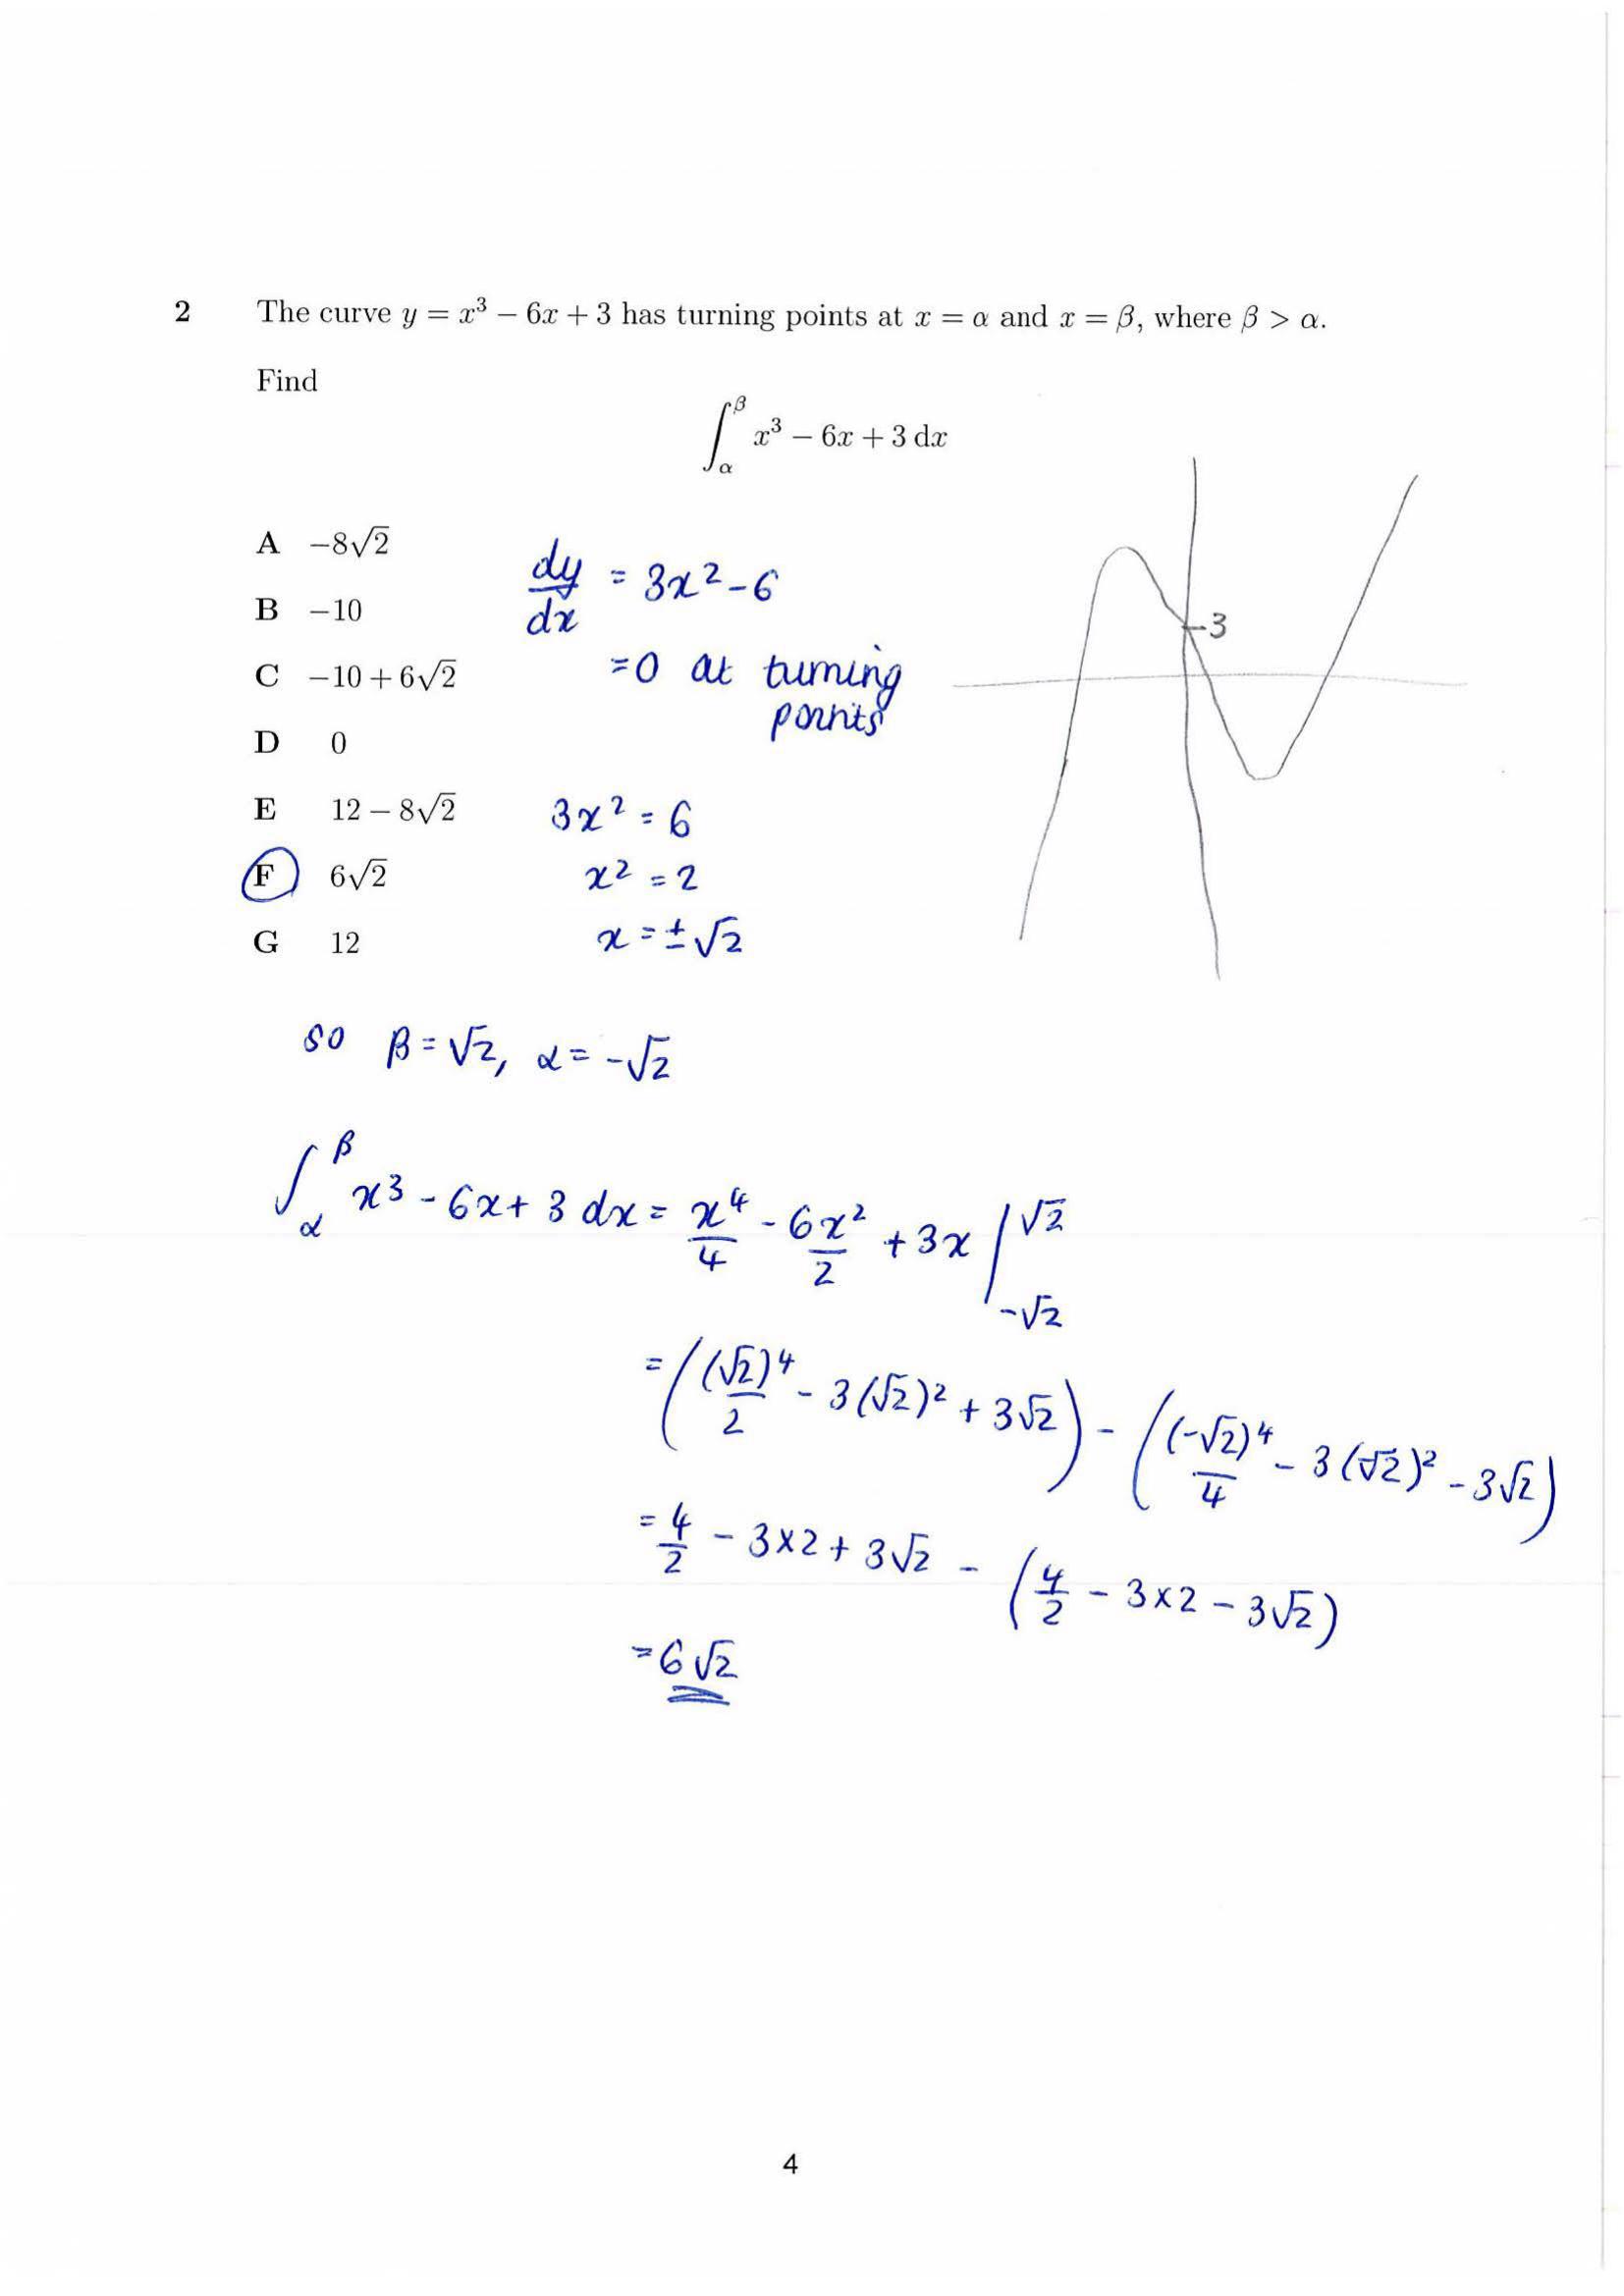 2 The curve y = x³ − 6x + 3 has turning points at x = α and x = β, where β > α.
Find
∫_α^β x³ − 6x + 3 dx
A −8√2
B −10
C −10 + 6√2
D 0
E 12 − 8√2
F 6√2
G 12
dy/dx = 3x² - 6
=0 at turning
points
3x² = 6
x² = 2
x = ±√2
3
so β = √2, α = -√2
∫_α^β x³ - 6x + 3 dx = x⁴/4 - 6x²/2 + 3x |_{-√2}^{√2}
= ((√2)⁴/2 - 3(√2)² + 3√2) - ((-√2)⁴/4 - 3(√2)² - 3√2)
= 4/2 - 3×2 + 3√2 - (4/2 - 3×2 - 3√2)
= 6√2
4